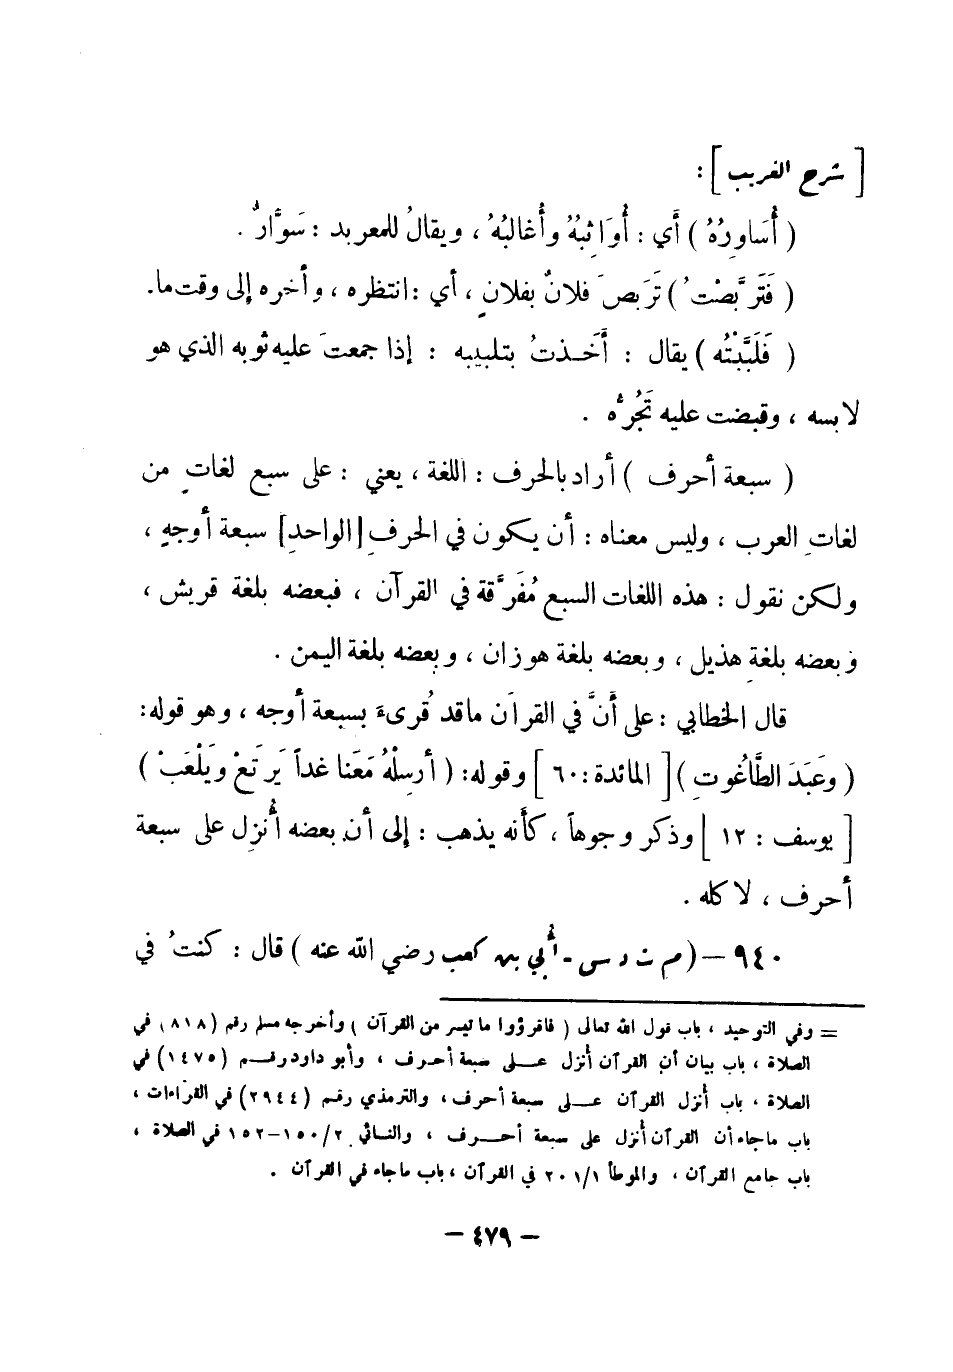 [ شرح الغريب ] :
( أُسَاوِرُهُ ) أَي : أُوَاثِبُهُ وأُغالبُهُ ، ويقالُ للمعربد : سَوَّارٌ .
( فَتَرَبَّصْتُ ) تَرَبصَ فلانٌ بفلانٍ ، أي : انتظره ، وأخره إلى وقت ما .
( فَلَبَّبْتُه ) يقال : أَخَذتُ بتلبيبه : إذا جمعتَ عليه ثوبه الذي هو
لابسه ، وقبضت عليه تَجُرُّه .
( سبعة أحرف ) أراد بالحرف : اللغة ، يعني : على سبع لغاتٍ من
لغاتِ العرب ، وليس معناه : أن يكون في الحرفِ [الواحدِ] سبعة أوجهٍ ،
ولكن نقول : هذه اللغات السبع مُفَرَّقة في القرآن ، فبعضه بلغة قريش ،
وبعضه بلغةِ هذيل ، وبعضه بلغة هوزان ، وبعضه بلغة اليمن .
قال الخطابي : على أَنَّ في القرآن ما قد قُرىءَ بسبعة أوجه ، وهو قوله:
( وعَبَدَ الطَّاغُوتِ ) [ المائدة : ٦٠ ] وقوله: ( أرسِلْهُ مَعَنا غداً يَرتَعْ ويَلْعَبْ )
[ يوسف : ١٢ ] وذكر وجوهاً ، كأنه يذهب : إلى أن بعضه أُنزل على سبعة
أحرف ، لا كله .
٩٤٠ – ( م ت د س - أُبي بن كعب رضي الله عنه ) قال : كنتُ في
= وفي التوحيد ، باب قول الله تعالى ( فاقرؤوا ما تيسر من القرآن ) وأخرجه مسلم رقم (٨١٨) في
الصلاة ، باب بيان أن القرآن أُنزل على سبعة أحرف ، وأبو داود رقم (١٤٧٥) في
الصلاة ، باب أُنزل القرآن على سبعة أحرف ، والترمذي رقم (٢٩٤٤) في القراءات ،
باب ما جاء أن القرآن أُنزل على سبعة أحرف ، والنسائي ١٥٠/٢–١٥٢ في الصلاة ،
باب جامع القرآن ، والموطأ ٢٠١/١ في القرآن ، باب ما جاء في القرآن .
– ٤٧٩ –